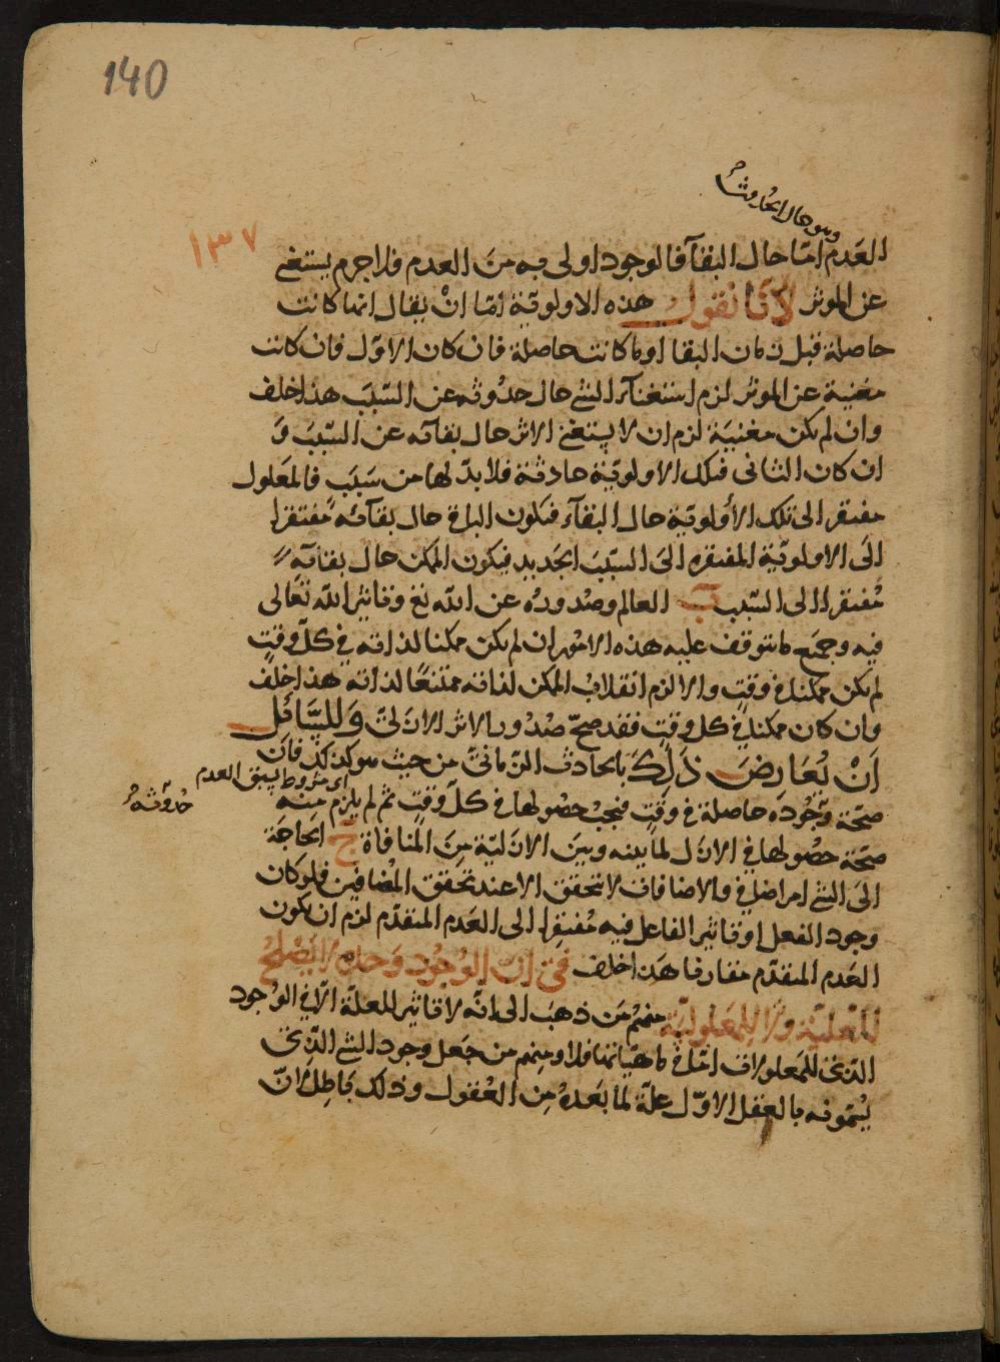 140
وهو حال الحدوث
١٣٧
العدم امّا حال البقآ فالوجود اولى به من العدم فلا جرم يستغنى
عن الموثر لانّا نقول هذه الاولويّة امّا انْ يقال انها كانت
حاصلة قبل زمان البقا او ما كانت حاصلة فان كان الاوّل فان كانت
مغنية عن الموثر لزم استغنآء الشئ حال حدُوثه عن السّبَب هذا خلف
وان لم يكن مغنيَة لزم ان لا يستغنى الاثر حال بقآئه عن السّبَب وَ
ان كان الثانى فتلك الاولويّة حادثة فلا بدّ لها من سَبَب فالمعَلول
مفتقر الى تلك الأولويّة حال البقآء فيكون الباقى حال بقآئه مُفتقرا
الَى الاولويّة المفتقره الىَ السّبَب الجَديد فيكون الممكن حال بقآئه
مُفتقرا الى السّبب ب العالم وصُدورُه عن الله تع وتاثير الله تعَالى
فيه وجميَع ما يتوقف عليه هذه الامُور ان لم يكن ممكنا لذاته في كلّ وقتٍ
لم يكن ممكنا في وقتٍ والا لزم انقلابُ الممكن لذاته ممتنعًا لذاته هذا خلفٌ
وان كان ممكنا في كل وقتٍ فقد صحّ صُدُور الاثر الازلىّ وَللسَّائل
اَنْ يُعَارضَ ذَلِكَ بالحادث الزّمانىّ من حيث هو كذلك فان
اى مشروط بسبق العدم
حُدوُثهُ
صحّة وُجُودَه حاصلة في وقتٍ فيجبُ حصُولها في كلّ وقتٍ ثم لم يلزم منه
صحّة حصُولها في الازل لما بينه وبين الازليّة مِنَ المنافاة ج الحاجَة
الَى الشئ امر اضافى والاضافات لا تتحقق الا عند تحَقق المُضافين فلو كان
وجود الفعل او تاثير الفاعل فيه مُفتقرا الى العَدم المتقدّم لزم ان يكون
العَدم المتقدّم مقارنا هَذا خلف فى انّ الوُجُود وَحدهُ لا يَصْلحُ
للعليّة ولا للمَعلوليّة منهُم مَن ذهبَ الى انّه لا تاثير للعلّة الّا في الوُجود
الذى للمَعلول اذ امّا فى ماهيّاتها فلا ومنهم من جَعل وجود الشئ الذِى
يُسَمّونه بالعقل الاوّل علّة لما بَعدهُ مِن العُقول وذلك بَاطِل لانّ